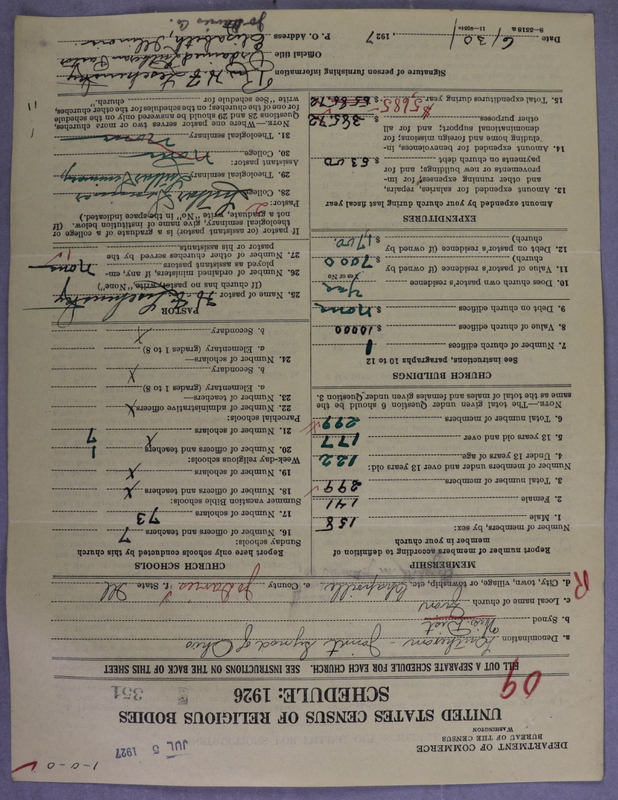 1-0-0
JUL 5 1927
DEPARTMENT OF COMMERCE
BUREAU OF THE CENSUS
WASHINGTON
UNITED STATES CENSUS OF RELIGIOUS BODIES
SCHEDULE: 1926
351
09
FILL OUT A SEPARATE SCHEDULE FOR EACH CHURCH. SEE INSTRUCTIONS ON THE BACK OF THIS SHEET
a. Denomination Lutheran - Joint Synod of Ohio
b. Synod
c. Local name of church Zion
d. City, town, village, or township, etc. e. County Jo Daviess f. State Ill
R
MEMBERSHIP
Report number of member according to definition of member in your church
Number of members, by sex:
1. Male 158
2. Female 141
3. Total number of members 299
Number of members under and over 13 years old:
4. Under 13 years of age 122
5. 13 years old and over 177
6. Total number of members 299
NOTE.—The total given under Question 6 should be the same as the total of males and females given under Question 3.
CHURCH BUILDINGS
See instructions, paragraphs 10 to 12
7. Number of church edifices 1
8. Value of church edifices $ 10000
9. Debt on church edifices $ None
10. Does church own pastor's residence Yes
Yes or No
11. Value of pastor's residence (if owned by church) $ 7000
12. Debt on pastor's residence (if owned by church) $ 1700
EXPENDITURES
Amount expended by your church during last fiscal year
13. Amount expended for salaries, repairs, and other running expenses; for improvements or new buildings; and for payments on church debt $ 5300
14. Amount expended for benevolences, including home and foreign missions; for denominational support; and for all other purposes $ 385.72
15. Total expenditures during year $ 5686.72
$5685
CHURCH SCHOOLS
Report here only schools conducted by this church
Sunday schools:
16. Number of officers and teachers 7
17. Number of scholars 73
Summer vacation Bible schools:
18. Number of officers and teachers X
19. Number of scholars X
Week-day religious schools:
20. Number of officers and teachers 1
21. Number of scholars X 7
Parochial schools:
22. Number of administrative officers X
23. Number of teachers—
a. Elementary (grades 1 to 8)
b. Secondary X
24. Number of scholars—
a. Elementary (grades 1 to 8)
b. Secondary X
PASTOR
25. Name of pastor
(If church has no pastor, write "None")
26. Number of ordained ministers, if any, employed as assistant pastors None
27. Number of other churches served by the pastor or his assistants
If pastor (or assistant pastor) is a graduate of a college or theological seminary, give name of institution below. (If not a graduate, write "No" in the space indicated.)
Pastor:
28. College
29. Theological seminary
Assistant pastor:
30. College None
31. Theological seminary None
NOTE.—Where one pastor serves two or more churches, Questions 28 and 29 should be answered only on the schedule for one of the churches; on the schedules for the other churches, write "See schedule for church."
Signature of person furnishing information
Official title Ordained Lutheran Pastor
P. O. Address Elizabeth, Illinois
Jo Daviess Co.
Date 6/30/, 1927